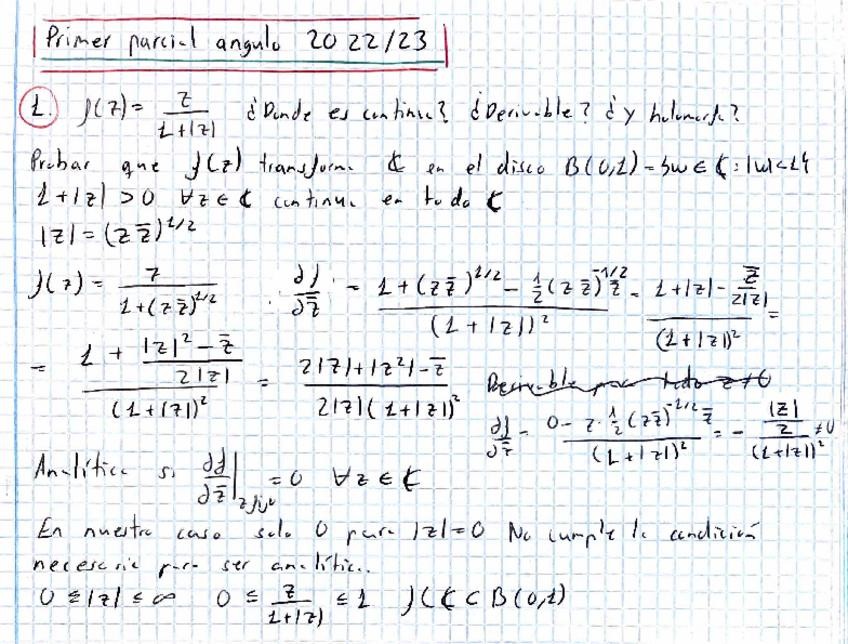 Primer parcial angulo 2022/23
1. f(z) = z / (1+|z|) ¿Donde es continua? ¿Derivable? ¿y holomorfa?
Probar que f(z) transforma ℂ en el disco B(0,1) = {w ∈ ℂ : |w|<1}
1+|z| > 0 ∀z ∈ ℂ continua en todo ℂ
|z| = (z z̄)^{1/2}
f(z) = z / (1+(z z̄)^{1/2}) ∂f/∂z̄ = (1+(z z̄)^{1/2} - 1/2 (z z̄)^{-1/2} z̄) / (1+|z|)² = (1+|z| - z̄/(2|z|)) / (1+|z|)² =
= (1 + (|z|² - z̄)/(2|z|)) / (1+|z|)² = (2|z|+|z²|-z̄) / (2|z|(1+|z|)²) Derivable para todo z≠0
∂f/∂z̄ = (0 - z · 1/2 (z z̄)^{-1/2} z̄) / (1+|z|)² = - (|z|/2) / (1+|z|)² ≠0
Analítica si ∂f/∂z̄ |_{z fijo} = 0 ∀z ∈ ℂ
En nuestro caso solo 0 para |z|=0 No cumple la condición
necesaria para ser analítica.
0 ≤ |z| ≤ ∞ 0 ≤ z / (1+|z|) ≤ 1 f(ℂ ⊂ B(0,1)